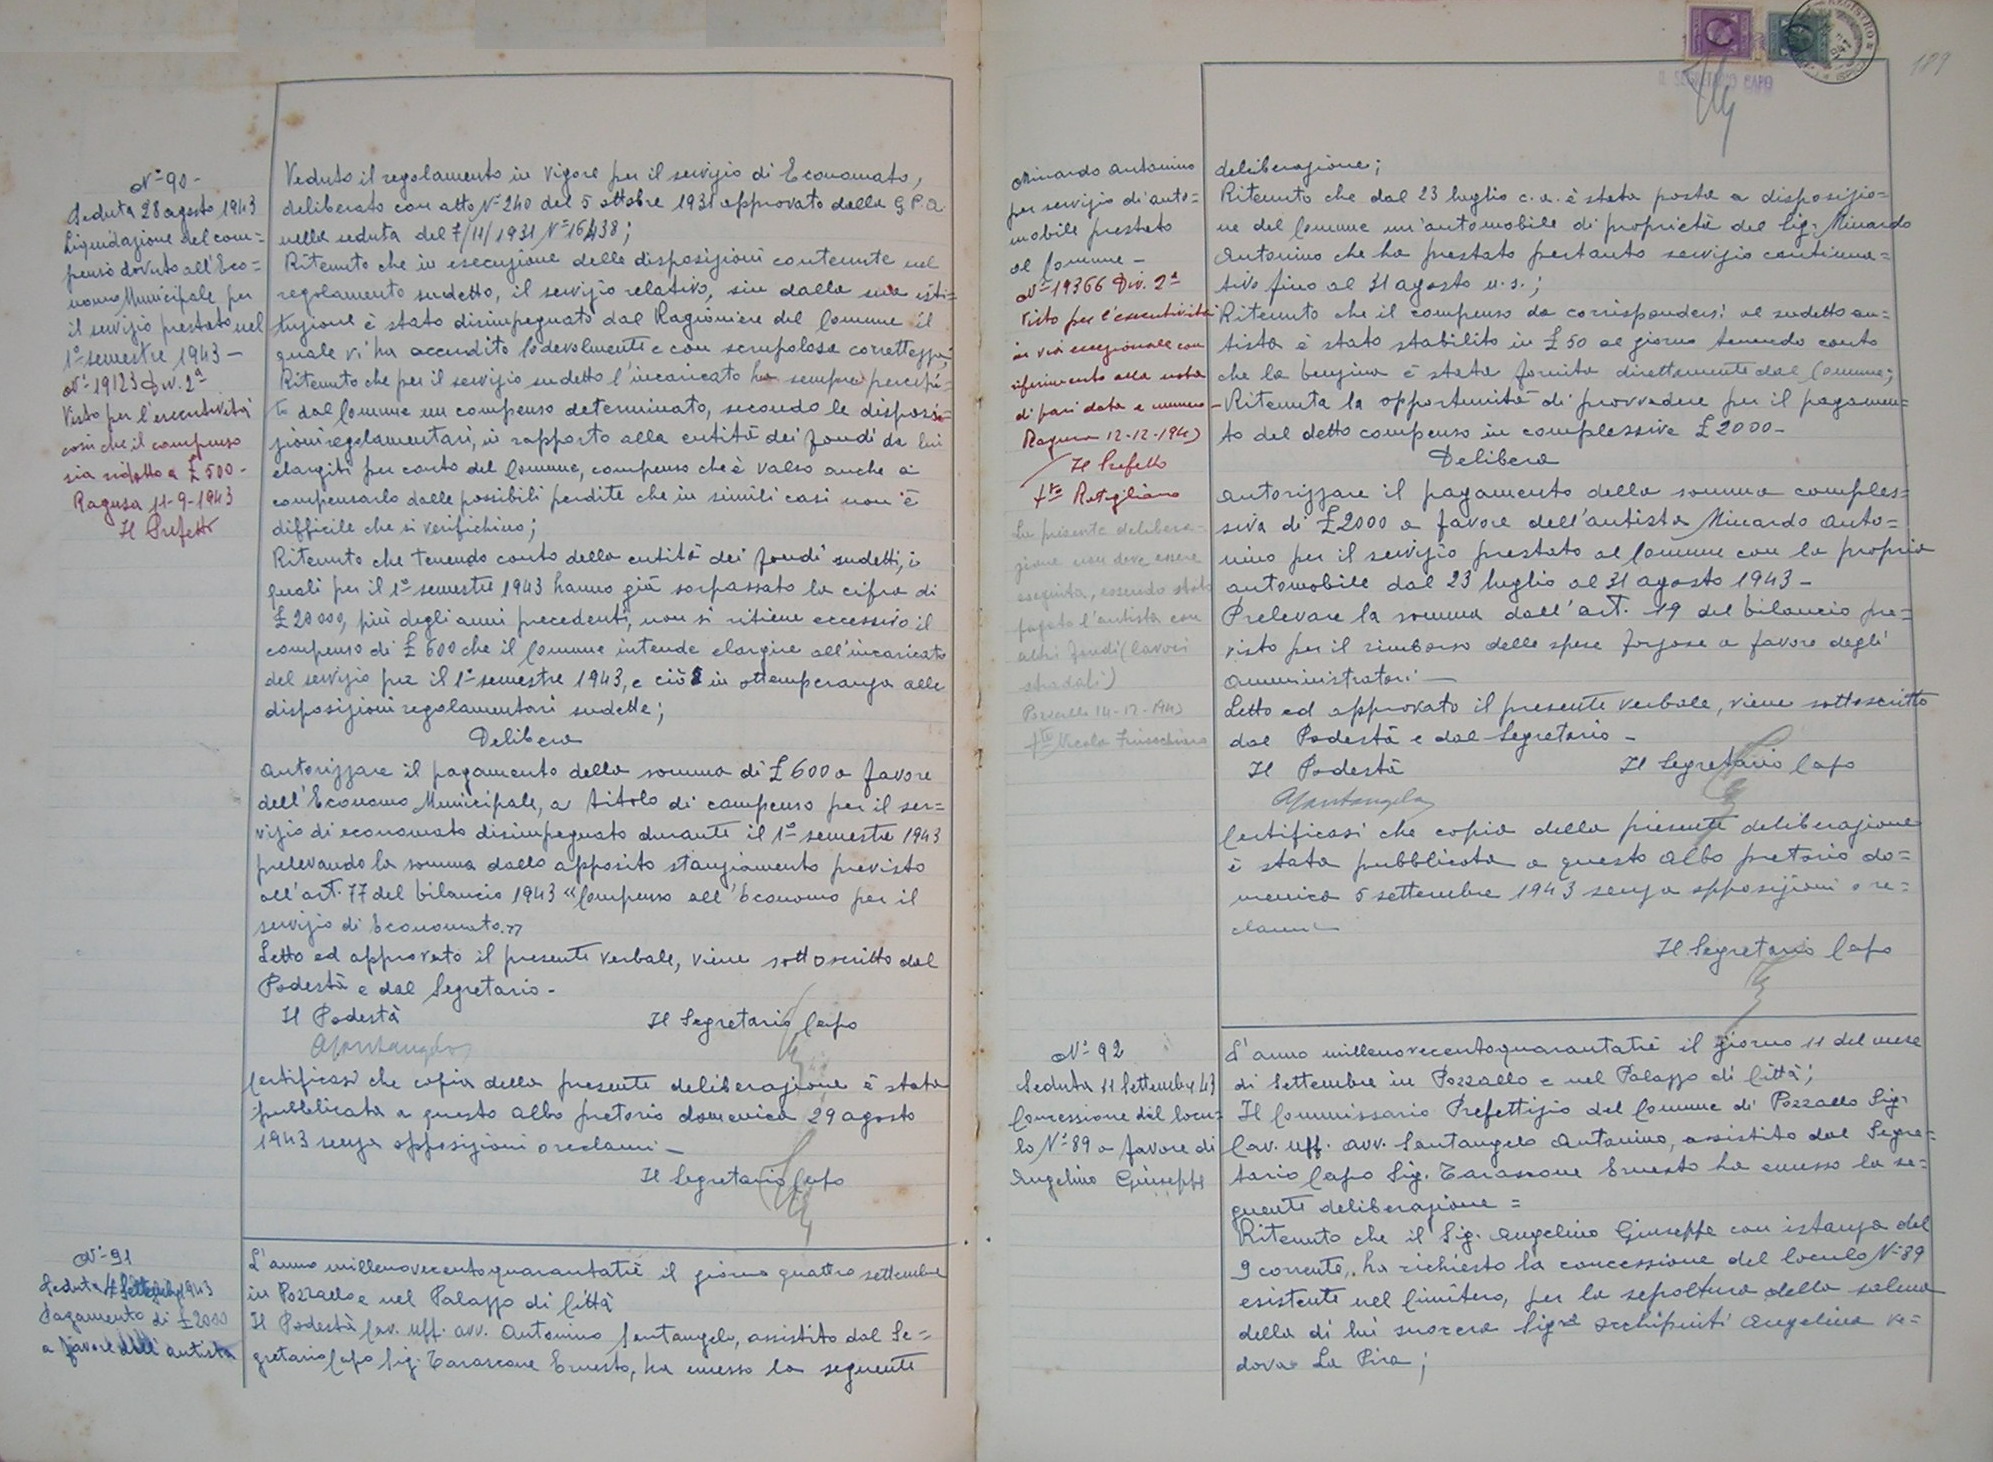 N° 90 -
Seduta 28 agosto 1943
Liquidazione del com=
penso dovuto all'Eco=
nomo Municipale per
il servizio prestato nel
1° semestre 1943 -
N° 19123 Div. 2ª
Visto per l'esecutività
così che il compenso
sia ridotto a £ 500 -
Ragusa 11-9-1943
Il Prefetto
Veduto il regolamento in vigore per il servizio di Economato,
deliberato con atto N° 240 del 5 ottobre 1931 approvato dalla G.P.A.
nella seduta del 7/11/1931 N° 16438;
Ritenuto che in esecuzione delle disposizioni contenute nel
regolamento sudetto, il servizio relativo, sin dalla sua isti=
tuzione è stato disimpegnato dal Ragioniere del Comune il
quale vi ha accudito lodevolmente e con scrupolosa correttezza;
Ritenuto che per il servizio sudetto l'incaricato ha sempre percepi=
to dal Comune un compenso determinato, secondo le disposi=
zioni regolamentari, in rapporto alla entità dei fondi da lui
elargiti per conto del Comune, compenso che è valso anche a
compensarlo dalle possibili perdite che in simili casi non è
difficile che si verifichino;
Ritenuto che tenendo conto della entità dei fondi sudetti, i
quali per il 1° semestre 1943 hanno già sorpassato la cifra di
£ 20000, più degli anni precedenti, non si ritiene eccessivo il
compenso di £ 600 che il Comune intende elargire all'incaricato
del servizio per il 1° semestre 1943, e ciò in ottemperanza alle
disposizioni regolamentari sudette;
Delibera
Autorizzare il pagamento della somma di £ 600 a favore
dell'Economo Municipale, a titolo di compenso per il ser=
vizio di economato disimpegnato durante il 1° semestre 1943
prelevando la somma dallo apposito stanziamento previsto
all'art. 77 del bilancio 1943 "Compenso all'Economo per il
servizio di Economato."
Letto ed approvato il presente verbale, viene sottoscritto dal
Podestà e dal Segretario -
Il Podestà Il Segretario Capo
ASantangelo
Certificasi che copia della presente deliberazione è stata
pubblicata a questo Albo pretorio domenica 29 agosto
1943 senza opposizioni o reclami -
Il Segretario Capo
N° 91
Seduta 4 Settembre 1943
Pagamento di £ 2000
a favore dell'autista
L'anno millenovecentoquarantatré il giorno quattro settembre
in Pozzallo e nel Palazzo di Città
Il Podestà Cav. Uff. avv. Antonino Santangelo, assistito dal Se=
gretario Capo Sig. Tarascone Ernesto, ha emesso la seguente
189
IL SEGRETARIO CAPO
Minardo Antonino
per servizio di auto=
mobile prestato
al Comune -
N° 19366 Div. 2ª
Visto per l'esecutività
in via eccezionale con
riferimento alla nota
di pari data e numero
Ragusa 12-12-1943
Il Prefetto
fto Rotigliano
La presente delibera=
zione non deve essere
eseguita, essendo stato
pagato l'autista con
altri fondi (lavori
stradali)
Pozzallo 14-12-1943
fto Nicola
deliberazione;
Ritenuto che dal 23 luglio c.a. è stata posta a disposizio=
ne del Comune un'automobile di proprietà del Sig. Minardo
Antonino che ha prestato pertanto servizio continua=
tivo fino al 31 agosto u.s.;
Ritenuto che il compenso da corrispondersi al sudetto au=
tista è stato stabilito in £ 50 al giorno tenendo conto
che la benzina è stata fornita direttamente dal Comune;
Ritenuta la opportunità di provvedere per il pagamen=
to del detto compenso in complessive £ 2000 -
Delibera
Autorizzare il pagamento della somma comples=
siva di £ 2000 a favore dell'autista Minardo Anto=
nino per il servizio prestato al Comune con la propria
automobile dal 23 luglio al 31 agosto 1943 -
Prelevare la somma dall'art. 19 del bilancio pre=
visto per il rimborso delle spese forzose a favore degli
amministratori -
Letto ed approvato il presente verbale, viene sottoscritto
dal Podestà e dal Segretario -
Il Podestà Il Segretario Capo
ASantangelo
Certificasi che copia della presente deliberazione
è stata pubblicata a questo Albo pretorio do=
menica 5 settembre 1943 senza opposizioni o re=
clami -
Il Segretario Capo
N° 92
Seduta 11 Settembre 43
Concessione del locu=
lo N° 89 a favore di
Angelino Giuseppe
L'anno millenovecentoquarantatré il giorno 11 del mese
di Settembre in Pozzallo e nel Palazzo di Città;
Il Commissario Prefettizio del Comune di Pozzallo Sig.
Cav. Uff. avv. Santangelo Antonino, assistito dal Segre=
tario Capo Sig. Tarascone Ernesto ha emesso la se=
guente deliberazione =
Ritenuto che il Sig. Angelino Giuseppe con istanza del
9 corrente, ha richiesto la concessione del loculo N° 89
esistente nel Cimitero, per la sepoltura della salma
della di lui suocera Sigra Occhipinti Angelina ve=
dova La Pira;